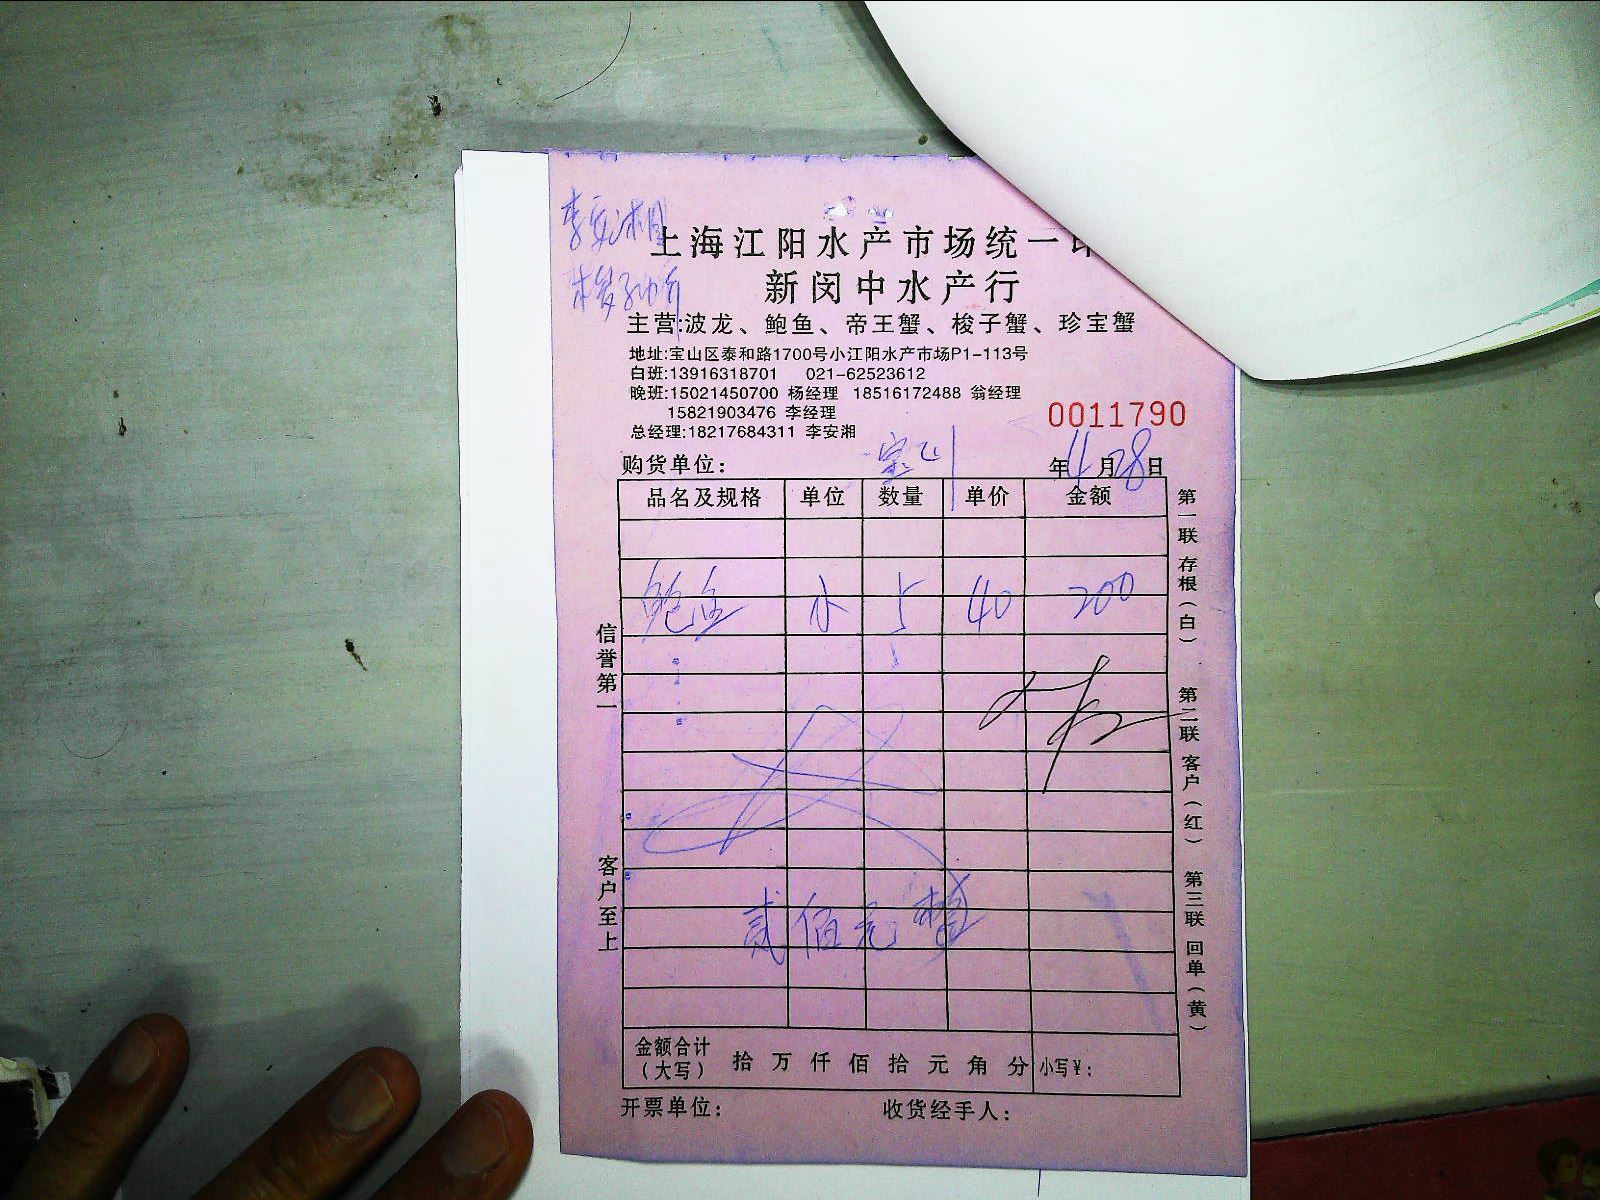 李安湘
上海江阳水产市场统一印
新闵中水产行
主营:波龙、鲍鱼、帝王蟹、梭子蟹、珍宝蟹
地址:宝山区泰和路1700号小江阳水产市场P1-113号
白班:13916318701 021-62523612
晚班:15021450700 杨经理 18516172488 翁经理
15821903476 李经理
总经理:18217684311 李安湘
0011790
购货单位: 年11月28日
品名及规格 单位 数量 单价 金额
鲍鱼 小 5 40 200
贰佰元整
金额合计(大写) 拾 万 仟 佰 拾 元 角 分 小写¥:
开票单位: 收货经手人:
信誉第一
客户至上
第一联 存根(白)
第二联 客户(红)
第三联 回单(黄)